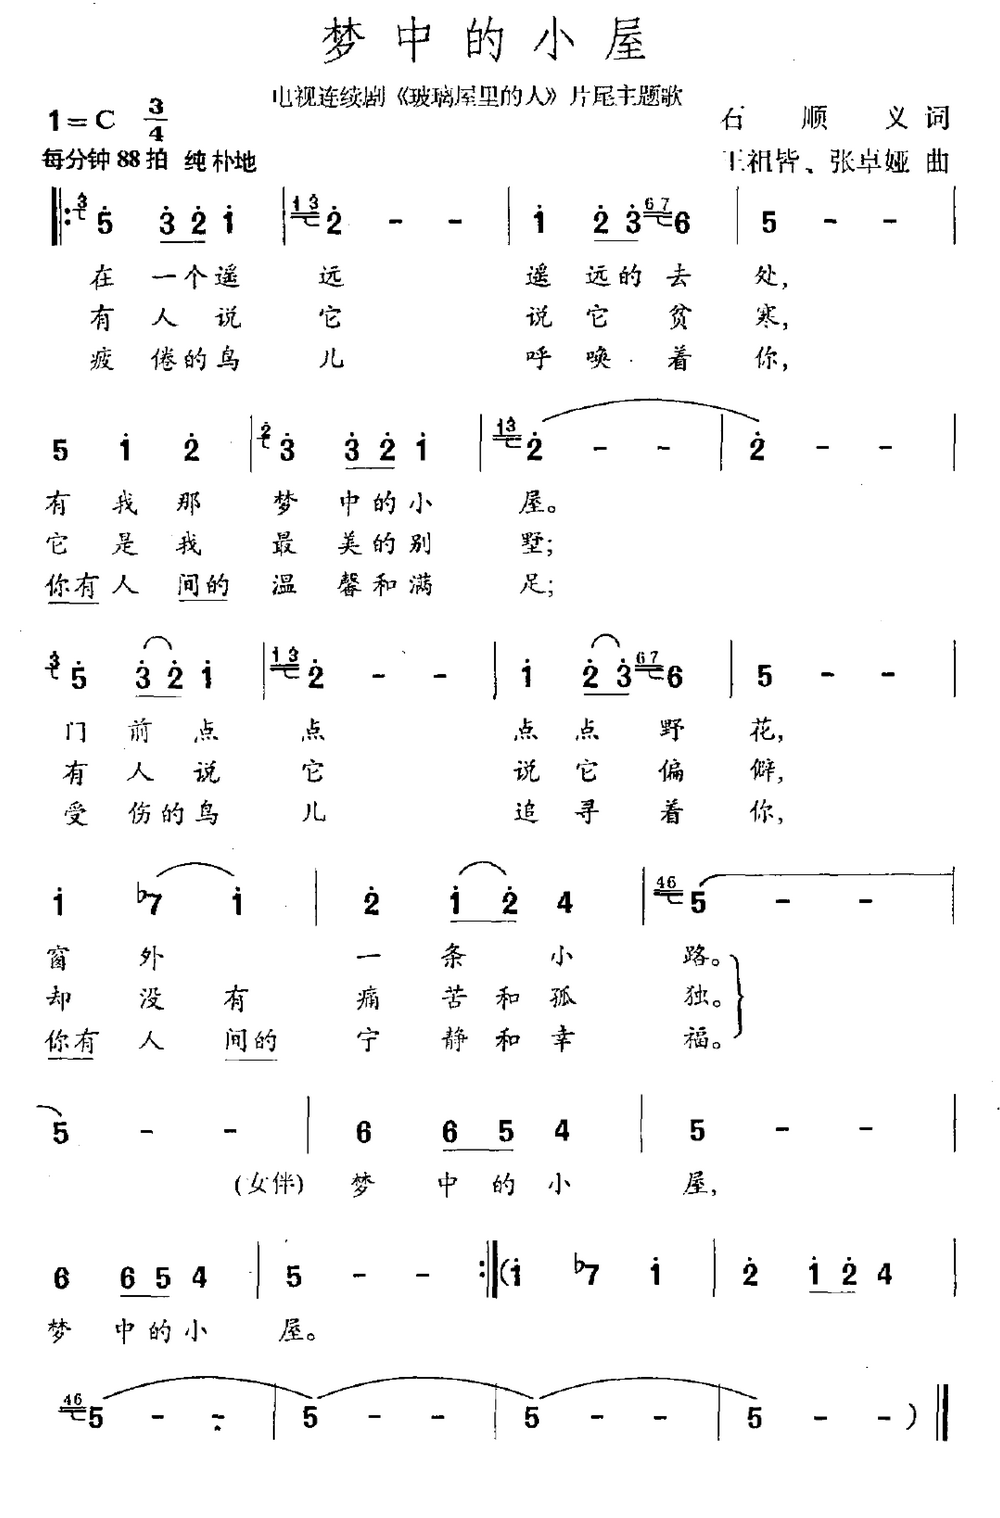 梦中的小屋
电视连续剧《玻璃屋里的人》片尾主题歌
1=C 3/4
石顺义 词
每分钟88拍 纯朴地
王祖皆、张卓娅 曲
‖: 3 5̇ 3̇ 2̇ 1̇ | 1̇3̇ 2̇ - - | 1̇ 2̇ 3̇ 67 6 | 5 - - |
在一个遥远 遥远的去处,
有人说它 说它贫寒,
疲倦的鸟儿 呼唤着你,
5 1̇ 2̇ | 2̇ 3̇ 3̇ 2̇ 1̇ | 1̇3̇ 2̇ - - | 2̇ - - |
有我那梦中的小屋。
它是我最美的别墅;
你有人间的温馨和满足;
3̇ 5̇ 3̇ 2̇ 1̇ | 1̇3̇ 2̇ - - | 1̇ 2̇ 3̇ 67 6 | 5 - - |
门前点点 点点野花,
有人说它 说它偏僻,
受伤的鸟儿 追寻着你,
1̇ ♭7 1̇ | 2̇ 1̇ 2̇ 4 | 46 5 - - |
窗外 一条小路。
却没有痛苦和孤独。
你有人间的宁静和幸福。
5 - - | 6 6 5 4 | 5 - - |
(女伴) 梦中的小屋,
6 6 5 4 | 5 - - :‖ (1̇ ♭7 1̇ | 2̇ 1̇ 2̇ 4 |
梦中的小屋。
46 5 - - | 5 - - | 5 - - | 5 - - ) ‖